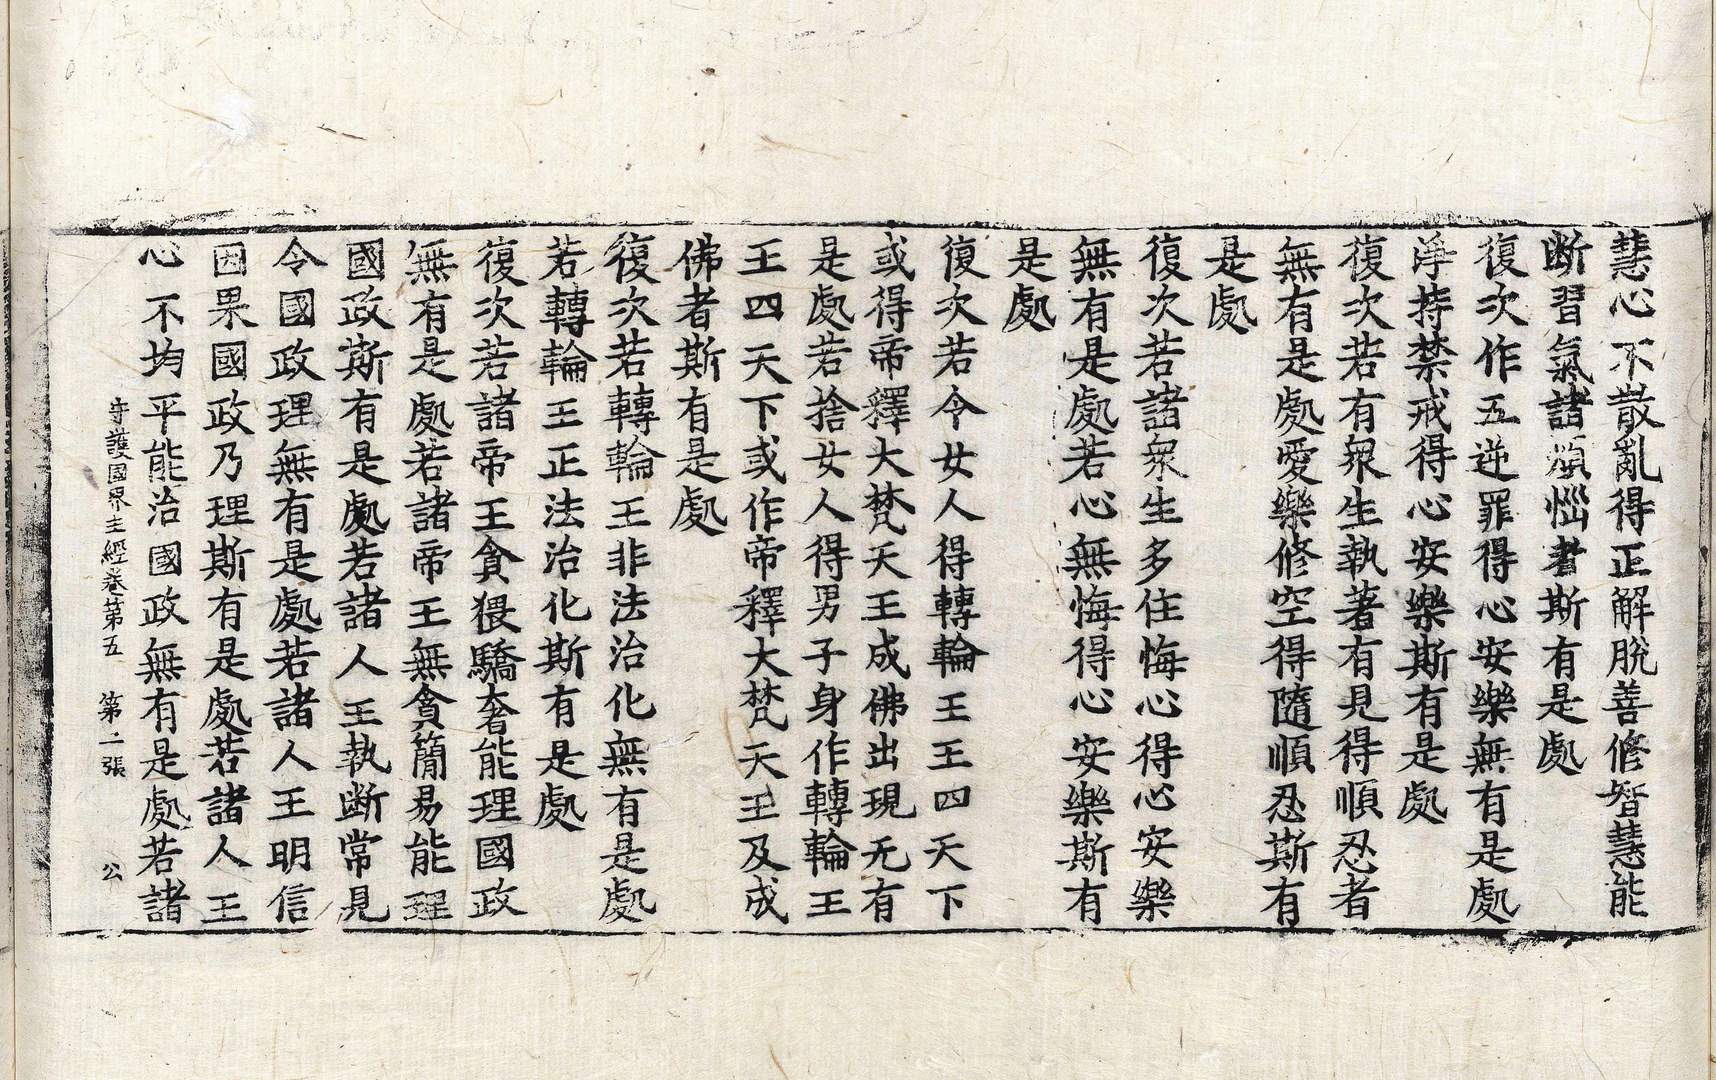 慧心不散亂得正解脫善修智慧能
断習氣諸煩惱者斯有是處
復次作五逆罪得心安樂無有是處
淨持禁戒得心安樂斯有是處
復次若有衆生執著有見得順忍者
無有是處愛樂修空得隨順忍斯有
是處
復次若諸衆生多住悔心得心安樂
無有是處若心無悔得心安樂斯有
是處
復次若令女人得轉輪王王四天下
或得帝釋大梵天王成佛出現无有
是處若捨女人得男子身作轉輪王
王四天下或作帝釋大梵天王及成
佛者斯有是處
復次若轉輪王非法治化無有是處
若轉輪王正法治化斯有是處
復次若諸帝王貪猥驕奢能理國政
無有是處若諸帝王無貪簡易能理
國政斯有是處若諸人王執斷常見
令國政理無有是處若諸人王明信
因果國政乃理斯有是處若諸人王
心不均平能治國政無有是處若諸
守護國界主經卷第五 第二張 公